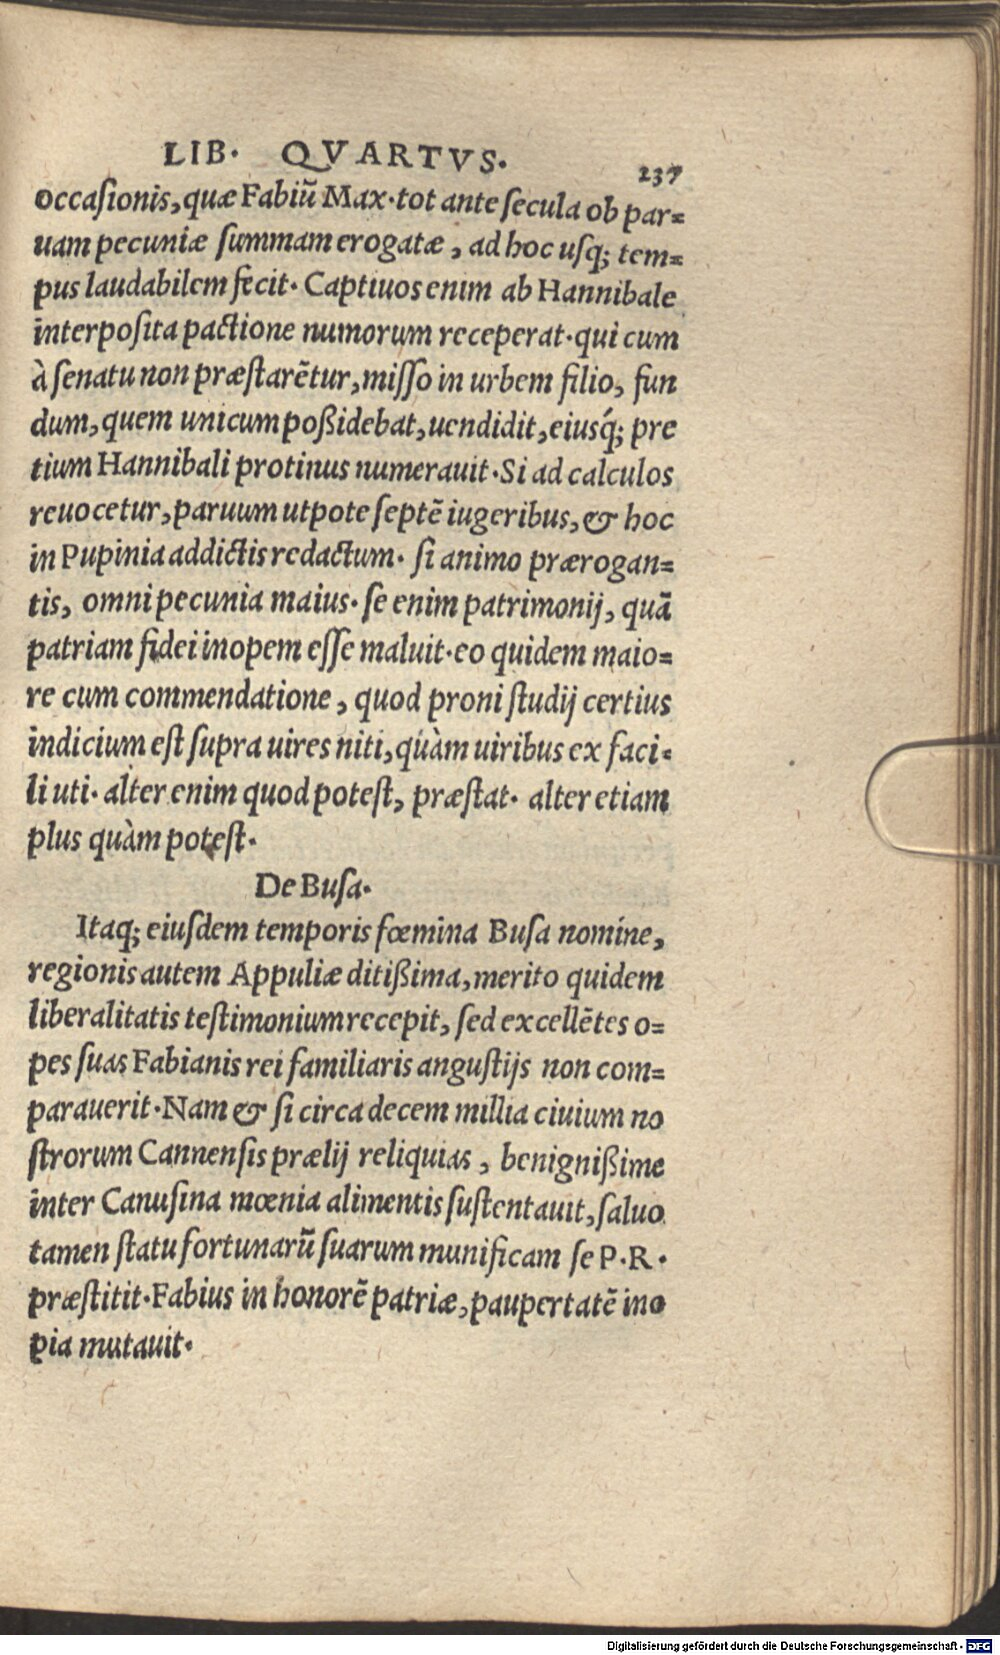 LIB. QVARTVS. 237
occaſionis, quæ Fabiū Max. tot ante ſecula ob par=
uam pecuniæ ſummam erogatæ, ad hoc uſq; tem=
pus laudabilem fecit. Captiuos enim ab Hannibale
interpoſita pactione numorum receperat. qui cum
à ſenatu non præſtarētur, miſſo in urbem filio, fun
dum, quem unicum poßidebat, uendidit, eiusq́; pre
tium Hannibali protinus numerauit. Si ad calculos
reuocetur, paruum utpote ſeptē iugeribus, & hoc
in Pupinia addictis redactum. ſi animo prærogan=
tis, omni pecunia maius. ſe enim patrimonij, quā
patriam fidei inopem eſſe maluit. eo quidem maio=
re cum commendatione, quod proni ſtudij certius
indicium eſt ſupra uires niti, quàm uiribus ex faci=
li uti. alter enim quod poteſt, præſtat. alter etiam
plus quàm poteſt.
De Buſa.
Itaq; eiuſdem temporis fœmina Buſa nomine,
regionis autem Appuliæ ditißima, merito quidem
liberalitatis teſtimonium recepit, ſed excellētes o=
pes ſuas Fabianis rei familiaris anguſtijs non com=
parauerit. Nam & ſi circa decem millia ciuium no
ſtrorum Cannenſis prælij reliquias, benignißime
inter Canuſina mœnia alimentis ſuſtentauit, ſaluo
tamen ſtatu fortunarū ſuarum munificam ſe P. R.
præſtitit. Fabius in honorē patriæ, paupertatē ino
pia mutauit.
Digitalisierung gefördert durch die Deutsche Forschungsgemeinschaft - DFG